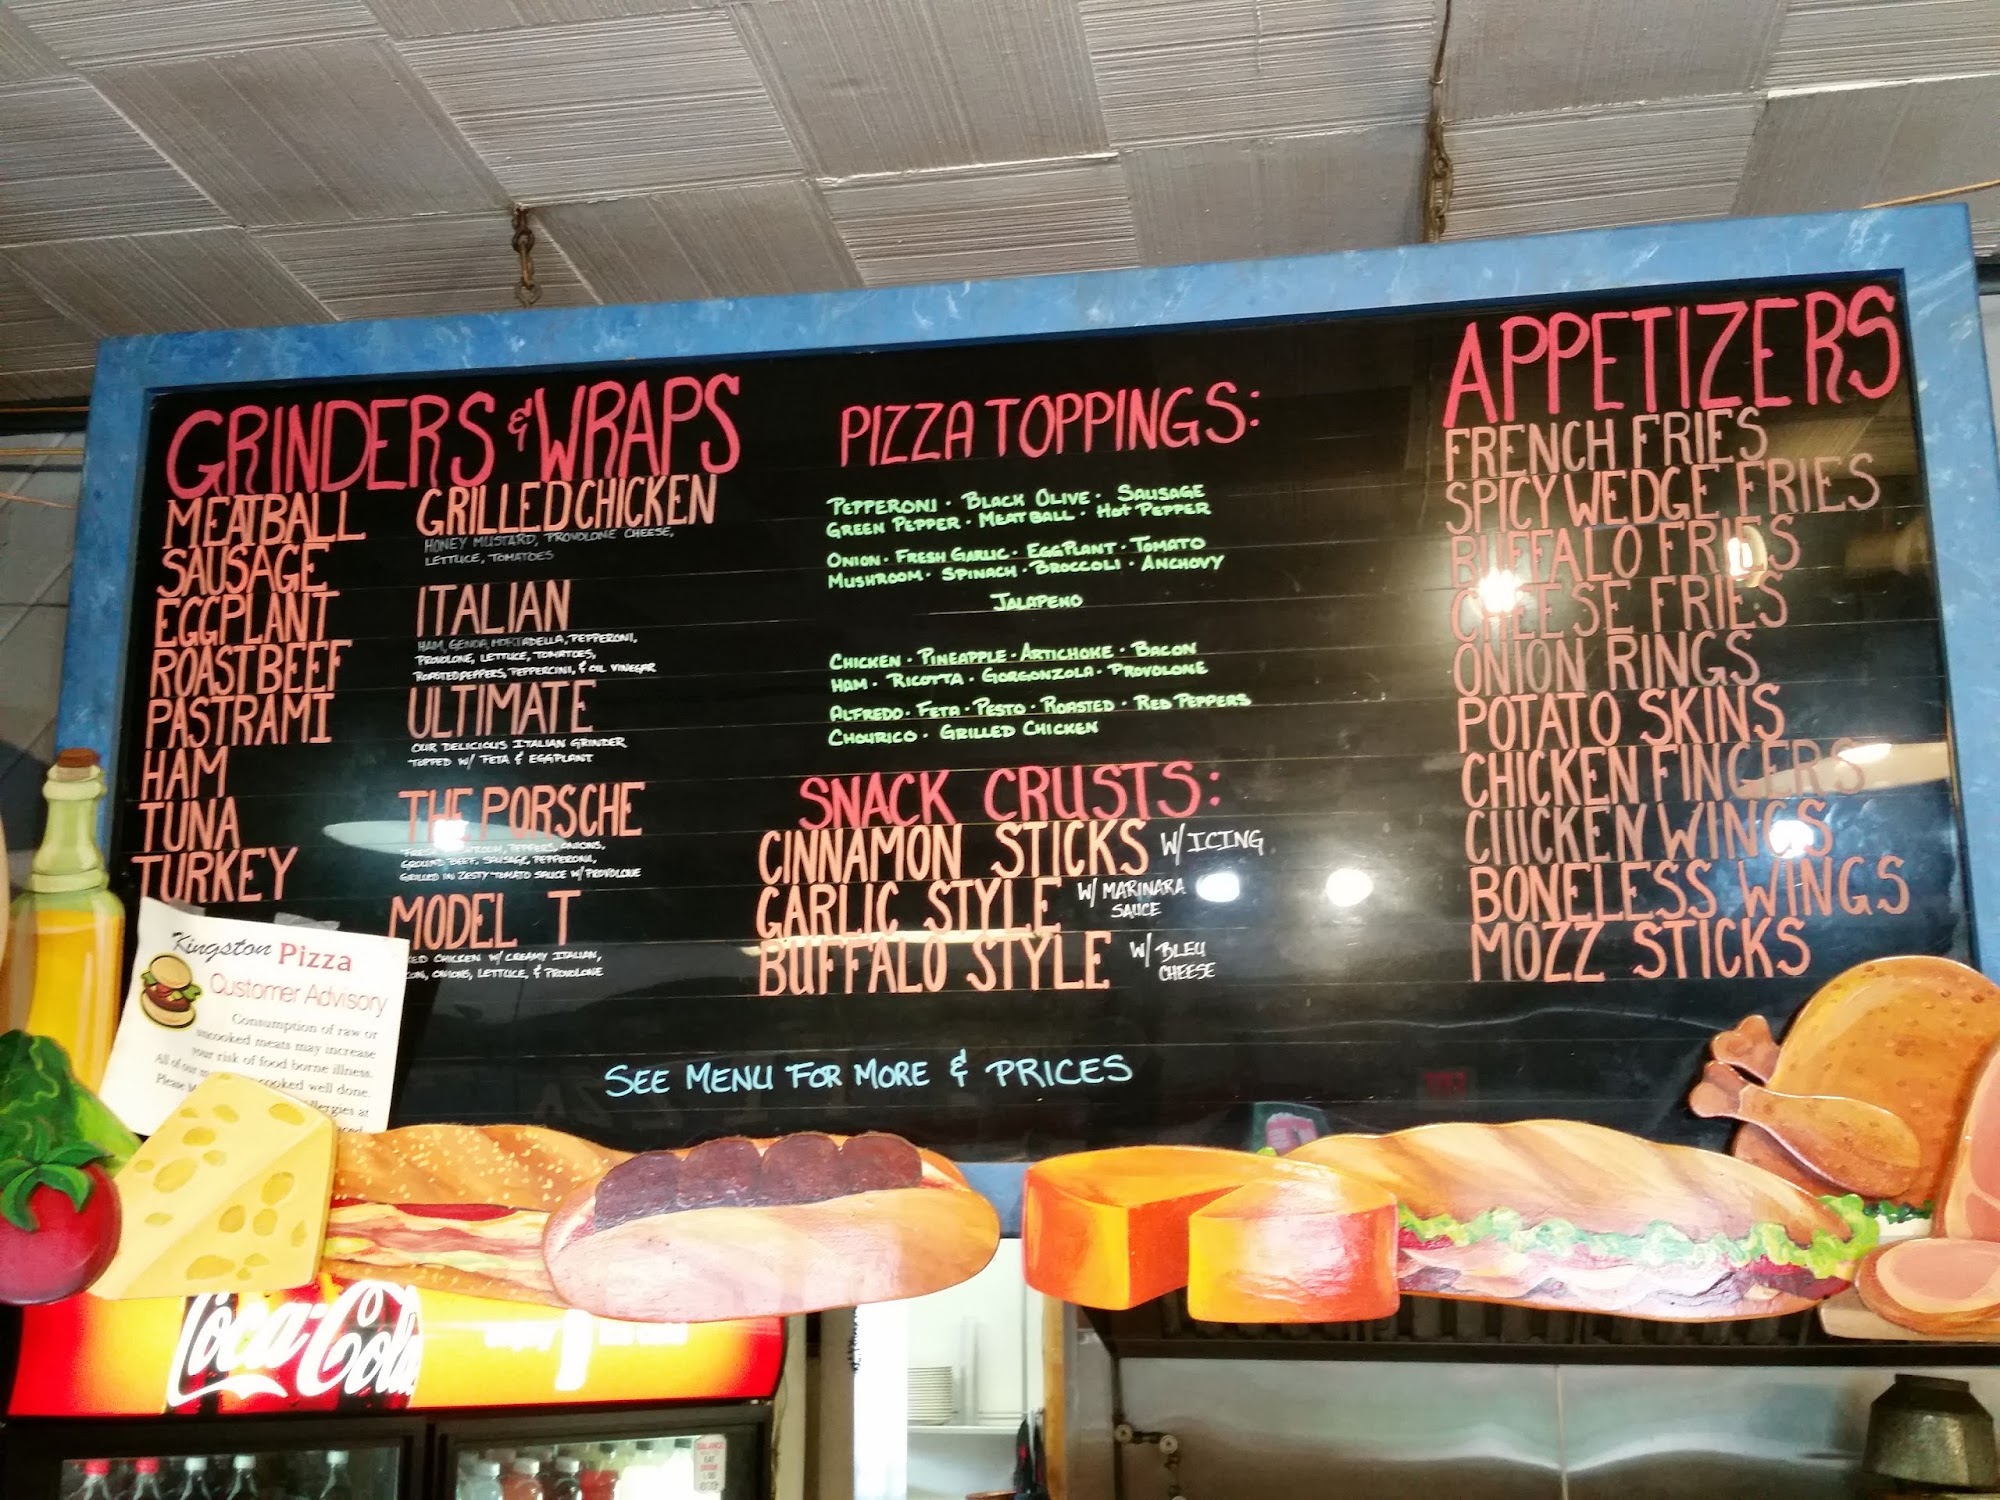 GRINDERS & WRAPS
MEATBALL
SAUSAGE
EGGPLANT
ROAST BEEF
PASTRAMI
HAM
TUNA
TURKEY
GRILLED CHICKEN
HONEY MUSTARD, PROVOLONE CHEESE,
LETTUCE, TOMATOES
ITALIAN
HAM, GENOA, MORTADELLA, PEPPERONI,
PROVOLONE, LETTUCE, TOMATOES,
ROASTED PEPPERS, PEPPERCINI, & OIL VINEGAR
ULTIMATE
OUR DELICIOUS ITALIAN GRINDER
TOPPED W/ FETA & EGGPLANT
THE PORSCHE
FRESH MUSHROOM, PEPPERS, ONIONS,
GROUND BEEF, SAUSAGE, PEPPERONI,
GRILLED IN ZESTY TOMATO SAUCE W/ PROVOLONE
MODEL T
CHICKEN W/ CREAMY ITALIAN,
ONIONS, LETTUCE, & PROVOLONE
PIZZA TOPPINGS:
PEPPERONI · BLACK OLIVE · SAUSAGE
GREEN PEPPER · MEATBALL · HOT PEPPER
ONION · FRESH GARLIC · EGGPLANT · TOMATO
MUSHROOM · SPINACH · BROCCOLI · ANCHOVY
JALAPENO
CHICKEN · PINEAPPLE · ARTICHOKE · BACON
HAM · RICOTTA · GORGONZOLA · PROVOLONE
ALFREDO · FETA · PESTO · ROASTED · RED PEPPERS
CHOURICO · GRILLED CHICKEN
SNACK CRUSTS:
CINNAMON STICKS W/ ICING
GARLIC STYLE W/ MARINARA
SAUCE
BUFFALO STYLE W/ BLEU
CHEESE
SEE MENU FOR MORE & PRICES
APPETIZERS
FRENCH FRIES
SPICY WEDGE FRIES
BUFFALO FRIES
CHEESE FRIES
ONION RINGS
POTATO SKINS
CHICKEN FINGERS
CHICKEN WINGS
BONELESS WINGS
MOZZ STICKS
Kingston Pizza
Customer Advisory
Consumption of raw or
uncooked meats may increase
your risk of food borne illness.
All of our cooked well done.
Please
allergies at
Coca-Cola